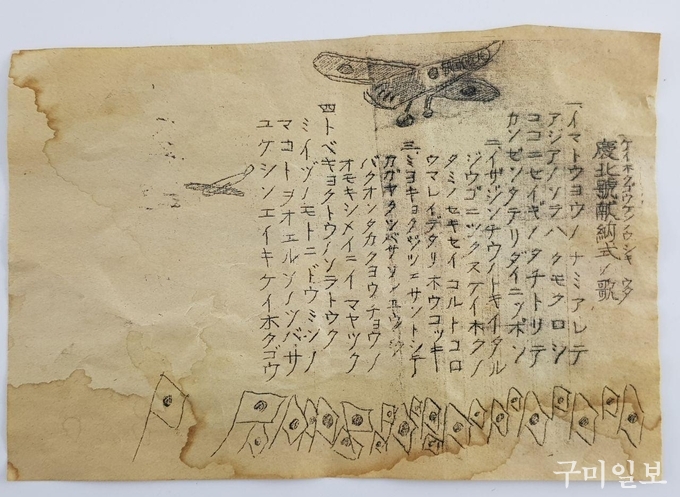 ケイホクガウケンノウシキ ウタ
慶北號献納式ノ歌
一、イマトウヨウノ ナミアレテ
アジアノソラハ クモクロシ
ココニセイギノ タチトリテ
カンゼンタテリダイニッポン
二、イザジンチウノトキイタル
ジウゴニツクスケイホクノ
タミノセキセイ コルトコロ
ウマレイデタリ ホウコッキ
三、ミヨキョクジツ サントシテ
カガヤクツバサノ
バクオンタカクヨウチョウノ
オモキシメイニイマヤツク
四、トベキョクトウノソラトウク
ミイヅノモトニ ドウミンノ
マコトヲオエルソノツバサ
ユケシンエイキケイホクゴウ
구미일보